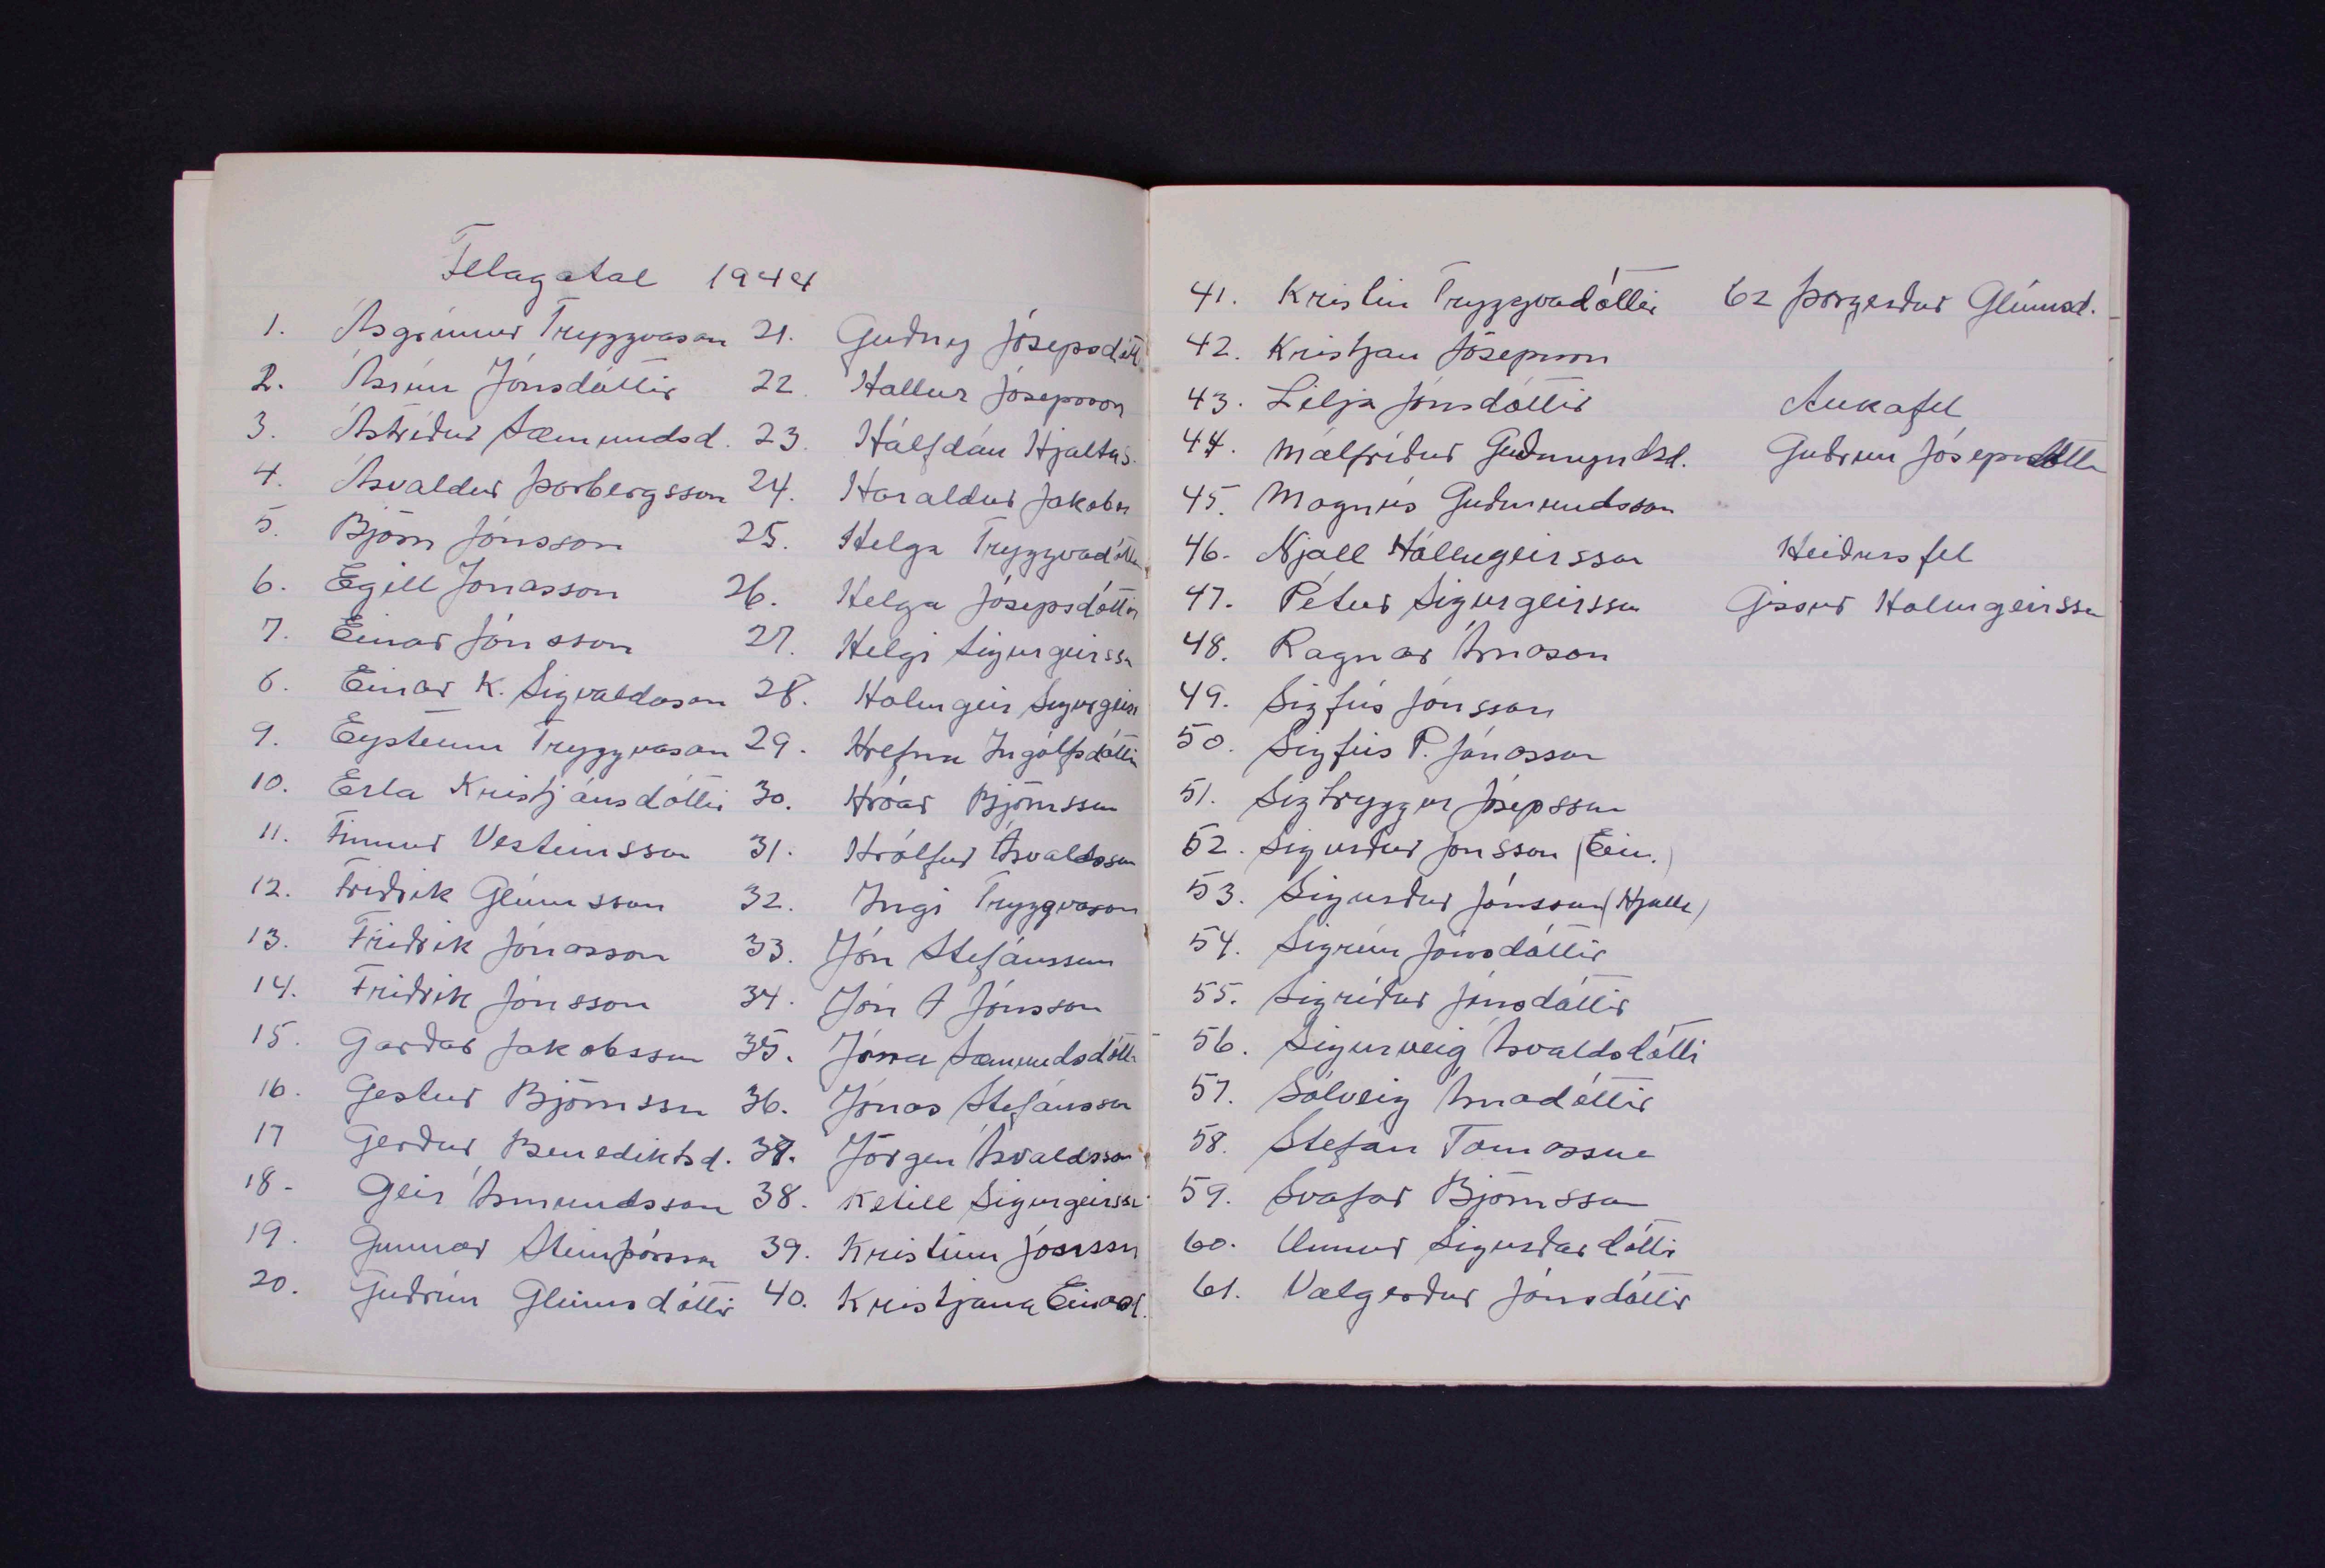 Felagatal 1944
1. Ásgrímur Tryggvason
2. Ásrún Jónsdóttir
3. Ástríður Sæmundsd.
4. Ásvaldur Þorbergsson
5. Björn Jónsson
6. Egill Jónasson
7. Einar Jónsson
8. Einar K. Sigvaldason
9. Eysteinn Tryggvason
10. Erla Kristjánsdóttir
11. Finnur Vesteinsson
12. Friðrik Glúmsson
13. Friðrik Jónasson
14. Friðrik Jónsson
15. Garðar Jakobsson
16. Gestur Björnssn
17 Gerður Benediktsd.
18. Geir Ásmundsson
19. Gunnar Steinþórssn
20. Guðrún Glúmsdóttir
21. Guðný Jósepsdótt
22. Hallur Jósepsson
23. Hálfdán Hjaltas.
24. Haraldur Jakobs
25. Helga Tryggvadóttir
26. Helga Jósepsdóttir
27. Helgi Sigurgeirssn
28. Holmgeir Sigurgeirs
29. Hrefna Ingólfsdóttir
30. Hróar Björnsson
31. Hrólfur Ásvaldsson
32. Ingi Tryggvason
33. Jón Stefánsson
34. Jón A Jónsson
35. Jóna Sæmundsdótti
36. Jónas Stefánsson
37. Jörgen Ásvaldsson
38. Ketill Sigurgeirssn
39. Kristinn
40. Kristjana Einarsd.
41. Kristin Tryggvadóttir
42. Kristjan Jósepsson
43. Lilja Jónsdóttir
44. Málfríður Guðmundsd.
45. Magnús Guðmundsson
46. Njall Hólmgeirsson
47. Pétur Sigurgeirsson
48. Ragnar Árnason
49. Sigfús Jónsson
50. Sigfús P. Jónasson
51. Sigtryggur Jósepsson
52. Sigurður Jónsson (Ein.)
53. Sigurður Jónsson (Hjalla)
54. Sigrún Jónsdóttir
55. Sigríður Jónsdóttir
56. Sigurveig Ásvaldsdótti
57. Sólveig Árnadóttir
58. Stefán Tómasson
59. Svafar Björnsson
60. Unnur Sigurðardótti
61. Valgerður Jónsdóttir
62 Þorgerður Glúmsd.
Aukafel
Guðrún Jósepsdótti
Heiðursfel
Gissur Holmgeirssn